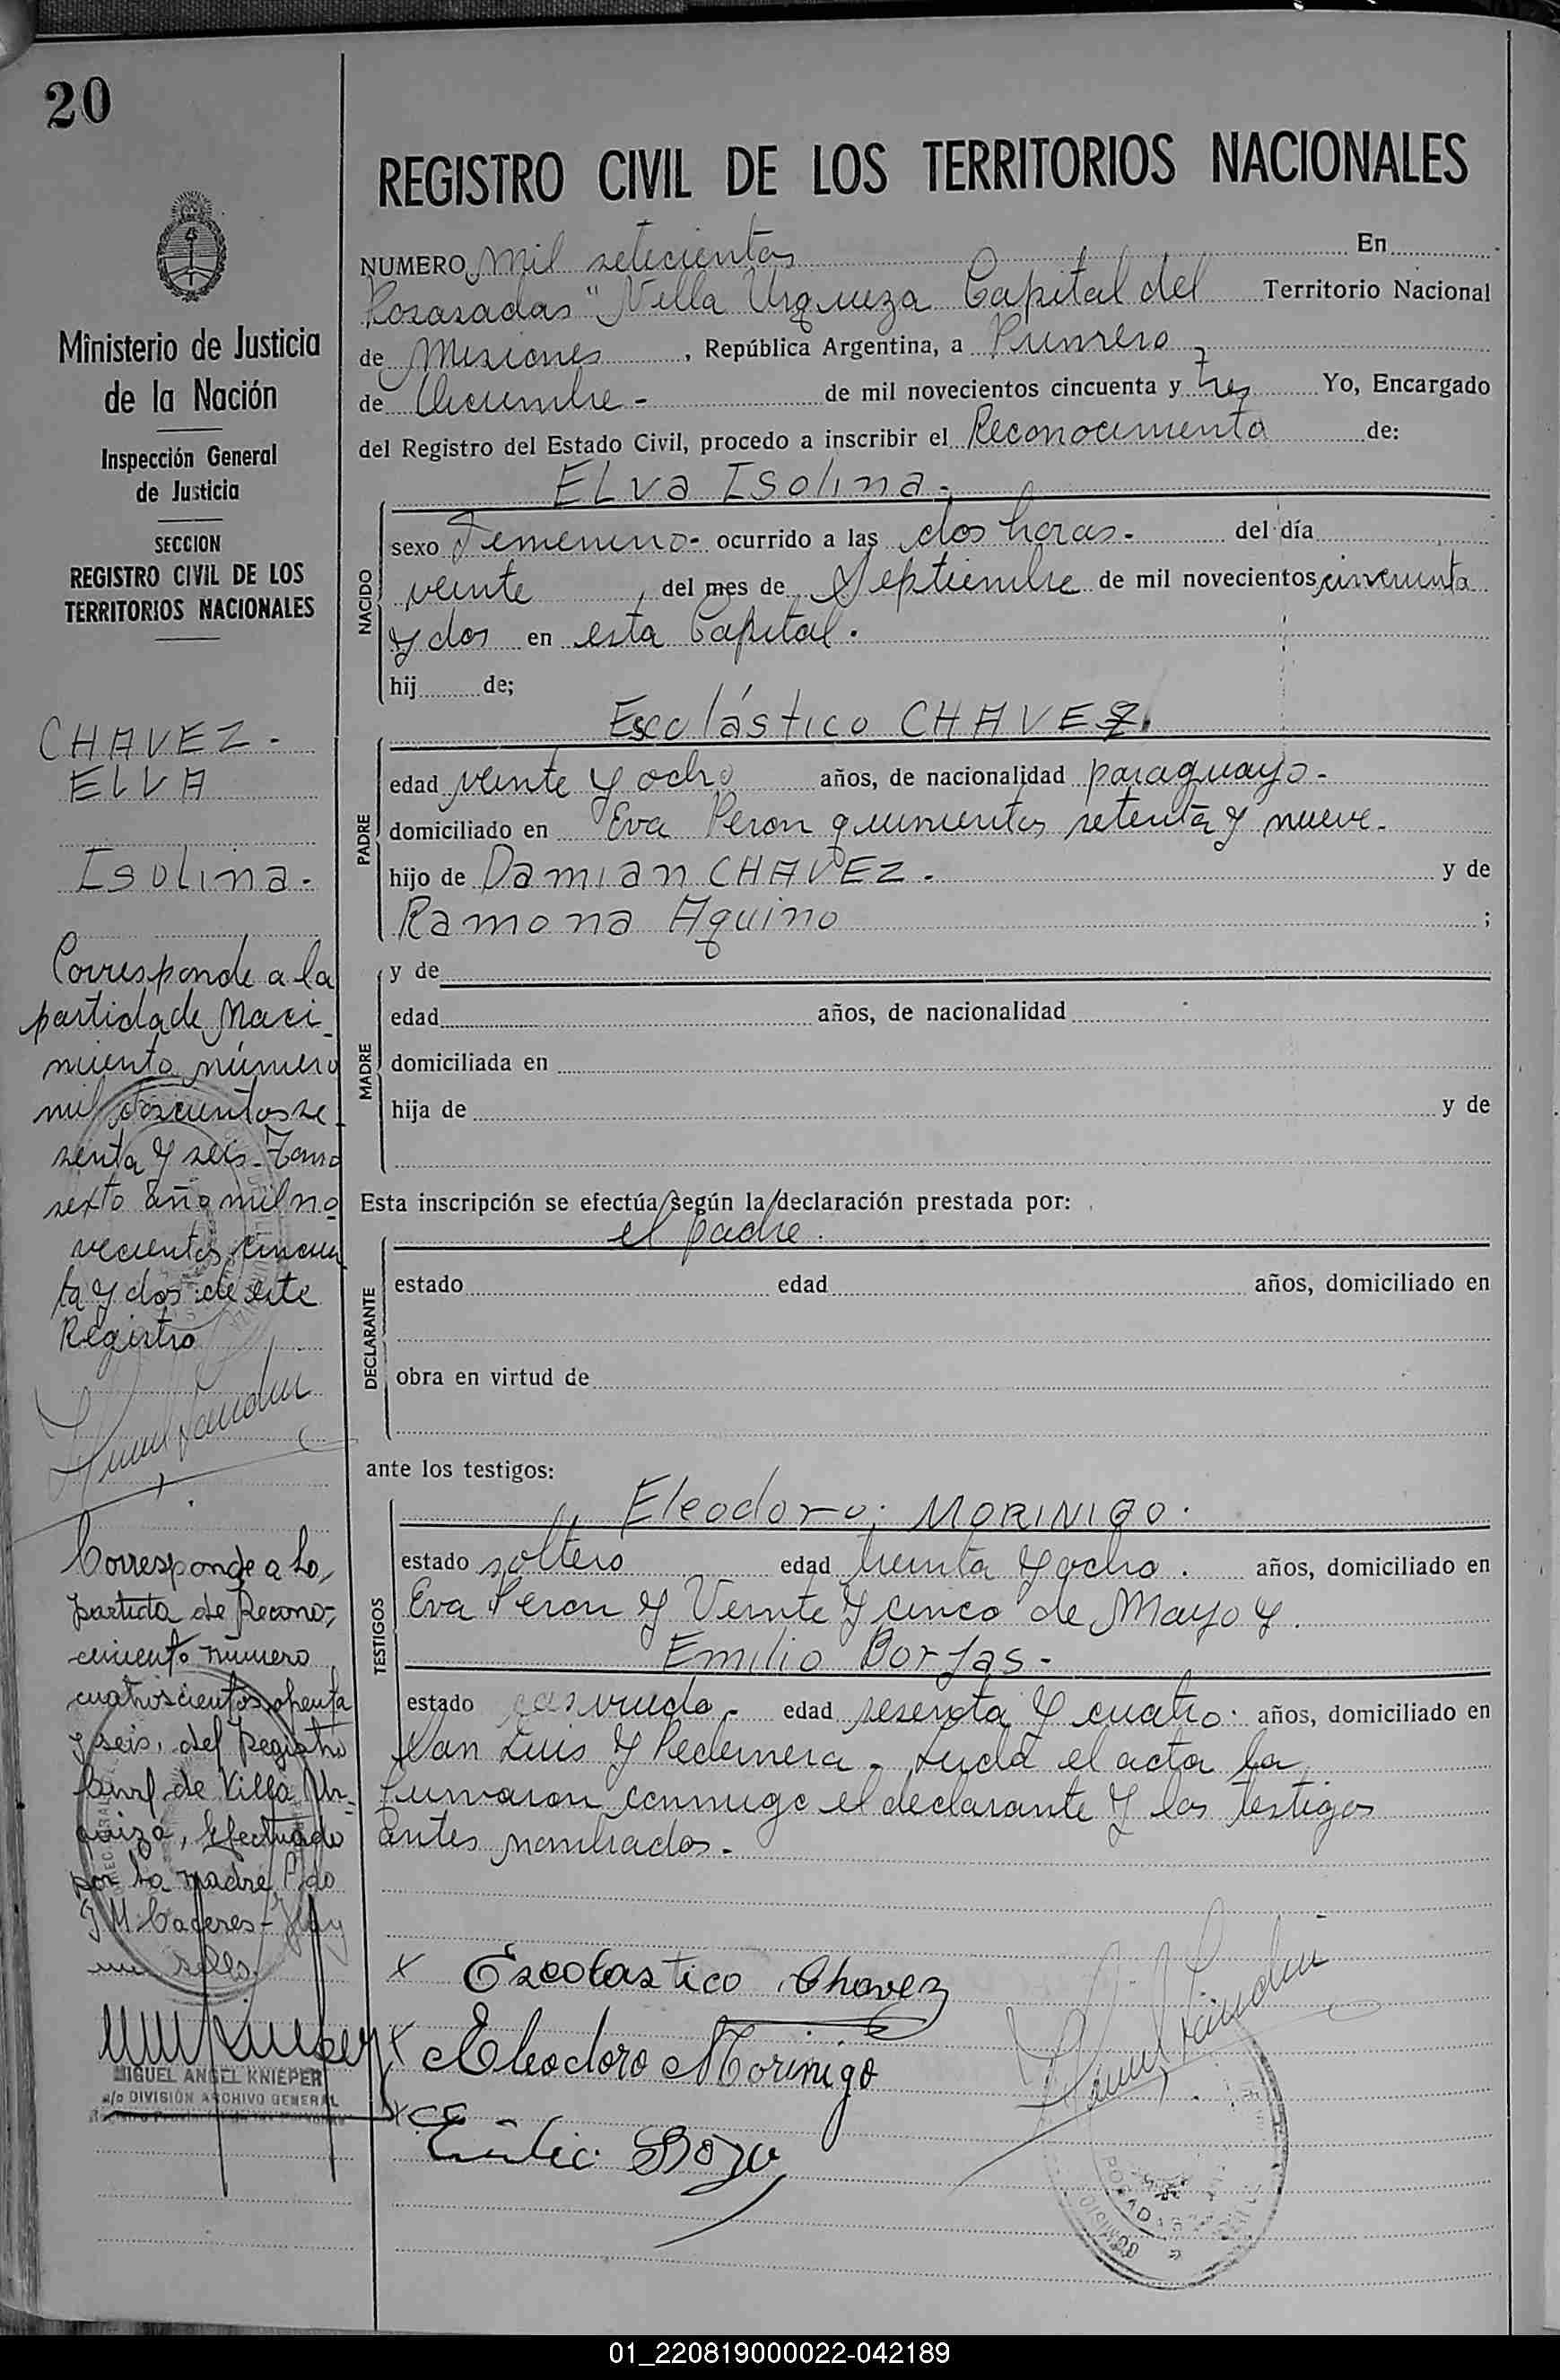 20
REGISTRO CIVIL DE LOS TERRITORIOS NACIONALES
NUMERO mil setecientos En
Posasadas "Villa Urquiza Capital del Territorio Nacional
de Misiones, República Argentina, a Primero
de Diciembre - de mil novecientos cincuenta y tres Yo, Encargado
del Registro del Estado Civil, procedo a inscribir el Reconocimiento de:
ELva ISolina -
NACIDO
sexo Femenino - ocurrido a las dos horas - del día
veinte, del mes de Septiembre de mil novecientos cincuenta
y dos en esta Capital.
hij de;
Escolástico CHAVEZ.
PADRE
edad veinte y ocho años, de nacionalidad paraguayo -
domiciliado en Eva Peron quinientos setenta y nueve -
hijo de Damian CHAVEZ - y de
Ramona Aquino ;
MADRE
y de
edad años, de nacionalidad
domiciliada en
hija de y de
Esta inscripción se efectúa según la declaración prestada por:
el padre.
DECLARANTE
estado edad años, domiciliado en
obra en virtud de
ante los testigos:
Eleodoro. MORINIGO.
TESTIGOS
estado soltero edad treinta y ocho. años, domiciliado en
Eva Peron y Veinte y cinco de Mayo y
Emilio Borjas -
estado edad sesenta y cuatro. años, domiciliado en
San Luis y Pedernera - Leida el acta la
firmaron conmigo el declarante y los testigos
antes nombrados -
x Escolastico Chavez
x Eleodoro Morinigo
x
Ministerio de Justicia
de la Nación
Inspección General
de Justicia
SECCION
REGISTRO CIVIL DE LOS
TERRITORIOS NACIONALES
CHAVEZ -
ELVA
Isolina -
Corresponde a la
partida de Naci-
miento número
mil doscientos se-
senta y seis - Tomo
sexto año mil no
vecientos cincuen
ta y dos de este
Registro
Corresponde a la
partida de Recono-
cimiento número
cuatroscientos ochenta
y seis, del Registro
Civil de Villa Ur-
quiza, efectuado
por la madre, Fdo
J M Caceres - Hay
un sello.
MIGUEL ANGEL KNIEPER
a/c DIVISIÓN ARCHIVO GENERAL
01_220819000022-042189